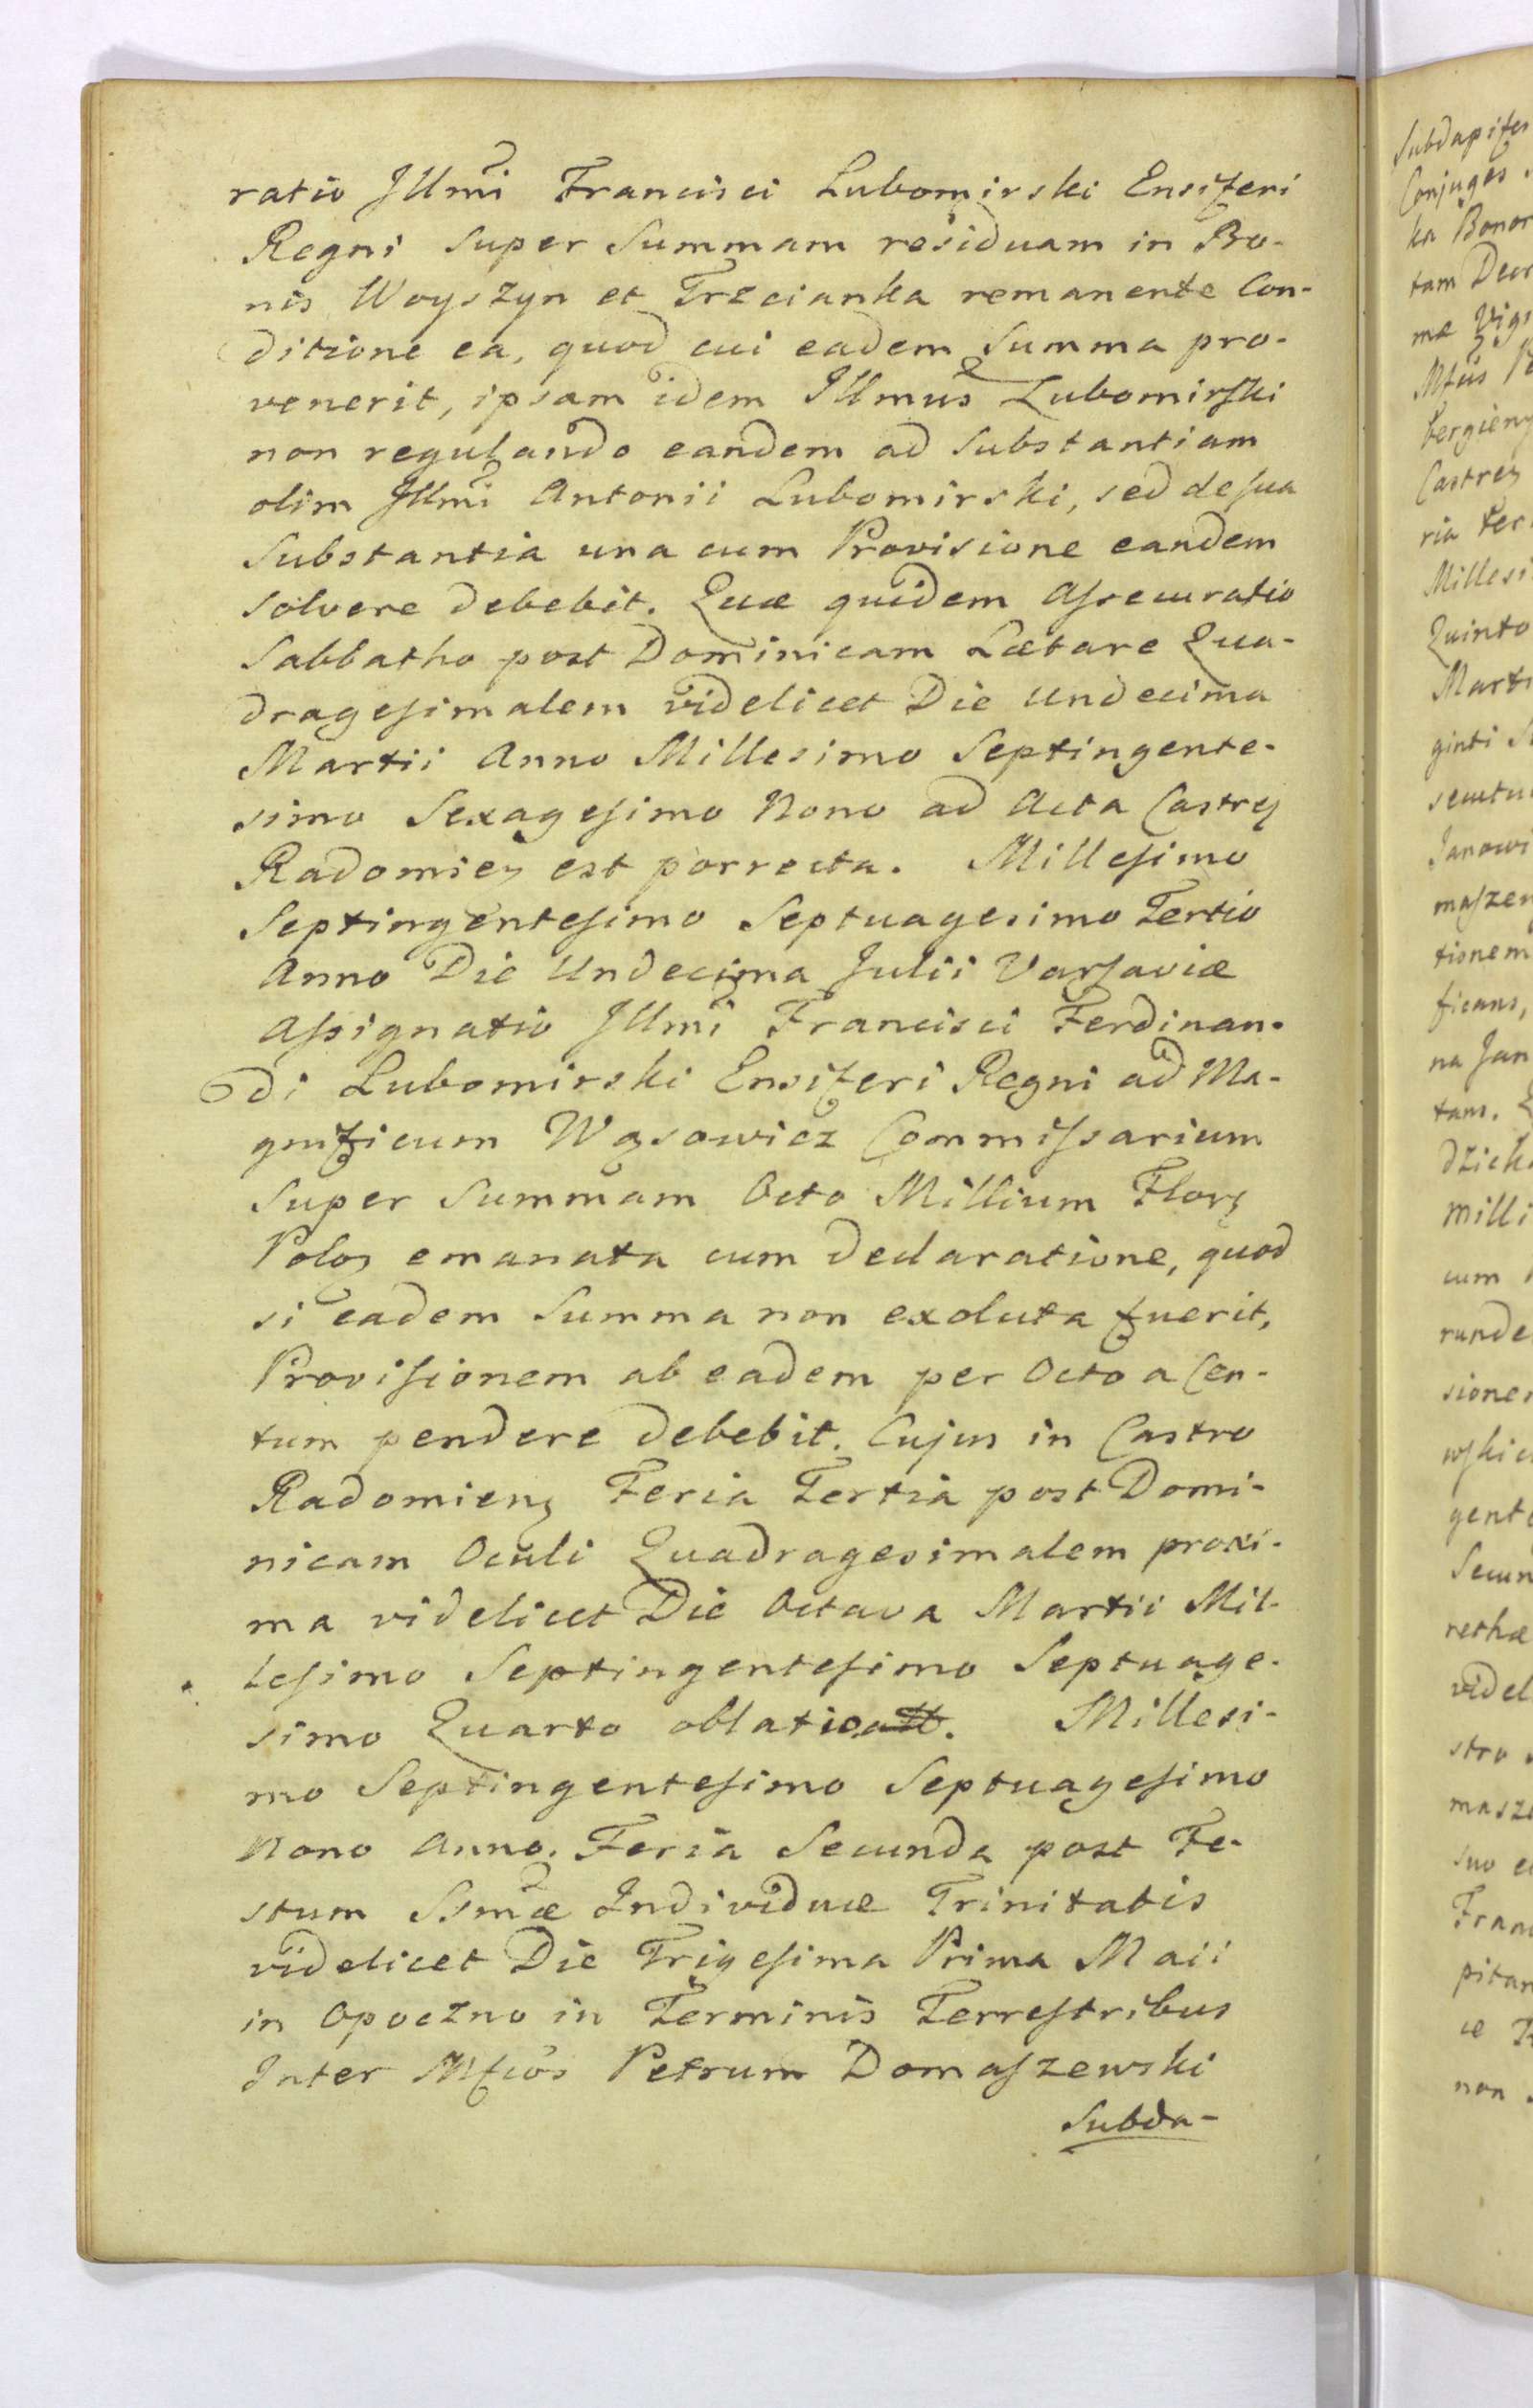 ratio Jllmi Francisci Lubomirski Ensiferi
Regni super Summam residuam in Bo-
nis Woyszyn et Trzcianka remanente Con-
ditione ea, quod cui eadem Summa pro-
venerit, ipsam idem Jllmus Lubomirski
non regulando eandem ad Substantiam
olim Jllmi Antonii Lubomirski, sed de sua
Substantia una cum Provisione eandem
solvere debebit. Quæ quidem Assecuratio
Sabbatho post Dominicam Lætare Qua-
dragesimalem videlicet Die Undecima
Martii Anno Millesimo Septingente-
simo Sexagesimo Nono ad Acta Castrz
Radomien est porrecta. Millesimo
Septingentesimo Septuagesimo Tertio
Anno Die Undecima Julii Varsaviæ
Assignatio Jllmi Francisci Ferdinan-
di Lubomirski Ensiferi Regni ad Ma-
gnificum Wąsowicz Commissarium
super Summam Octo Millium Florz
Poloz emanata cum declaratione, quod
si eadem Summa non exoluta fuerit,
Provisionem ab eadem per Octo a Cen-
tum pendere debebit. Cujus in Castro
Radomienz Feria Tertia post Domi-
nicam Oculi Quadragesimalem proxi-
ma videlicet Die Octava Martii Mil-
lesimo Septingentesimo Septuage-
simo Quarto oblatio. Millesi-
mo Septingentesimo Septuagesimo
Nono Anno. Feria Secunda post Fe-
stum Ssmæ Individuæ Trinitatis
videlicet Die Trigesima Prima Maii
in Opoczno in Terminis Terrestribus
Inter Mfcos Petrum Domaszewski
Subda-
Subdapifer
Conjuges
ka Bonor
tam Decr
mæ Vigi
Castrez
ria Ter
Millesi
Quinto
Marti
ginti
Janowi
maszew
tionem
ficans,
na Jan
tam.
dzick
milli
cum
runde
sione
wskie
gente
Secun
rethæ
videl
stro
masze
suo
Fran
pitan
non